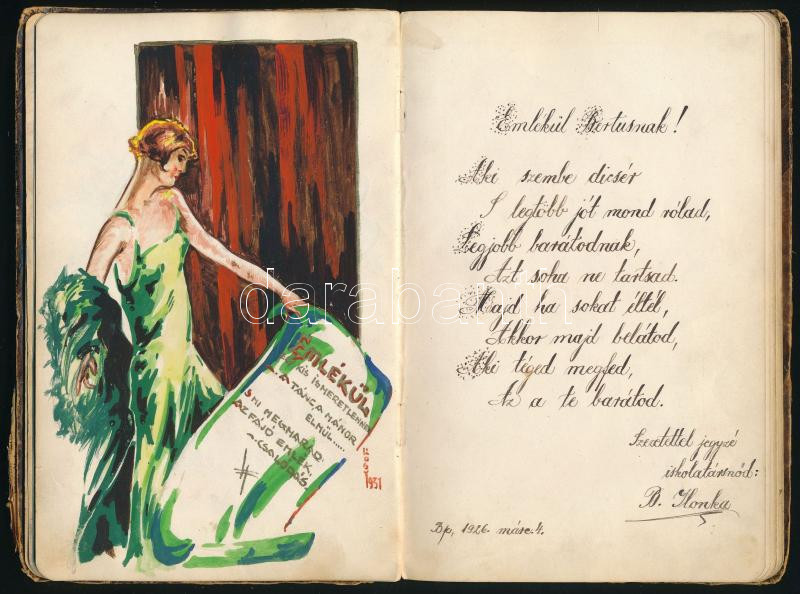 EMLÉKÜL
KIS ISMERETLENNEK
A TÁNC A MÁMOR
ELMÚL.....
S MI MEGMARAD
AZ FÁJÓ EMLÉK,
CSALÓDÁS
1931
Emlékül Bertusnak!
Aki szembe dicsér
S legtöbb jót mond rólad,
Legjobb barátodnak,
Azt soha ne tartsad.
Majd ha sokat éltél,
Akkor majd belátod,
Aki téged megfed,
Az a te barátod.
Szeretettel jegyzé
iskolatársnőd:
B. Ilonka
Bp, 1926. márc. 4.
darabanth